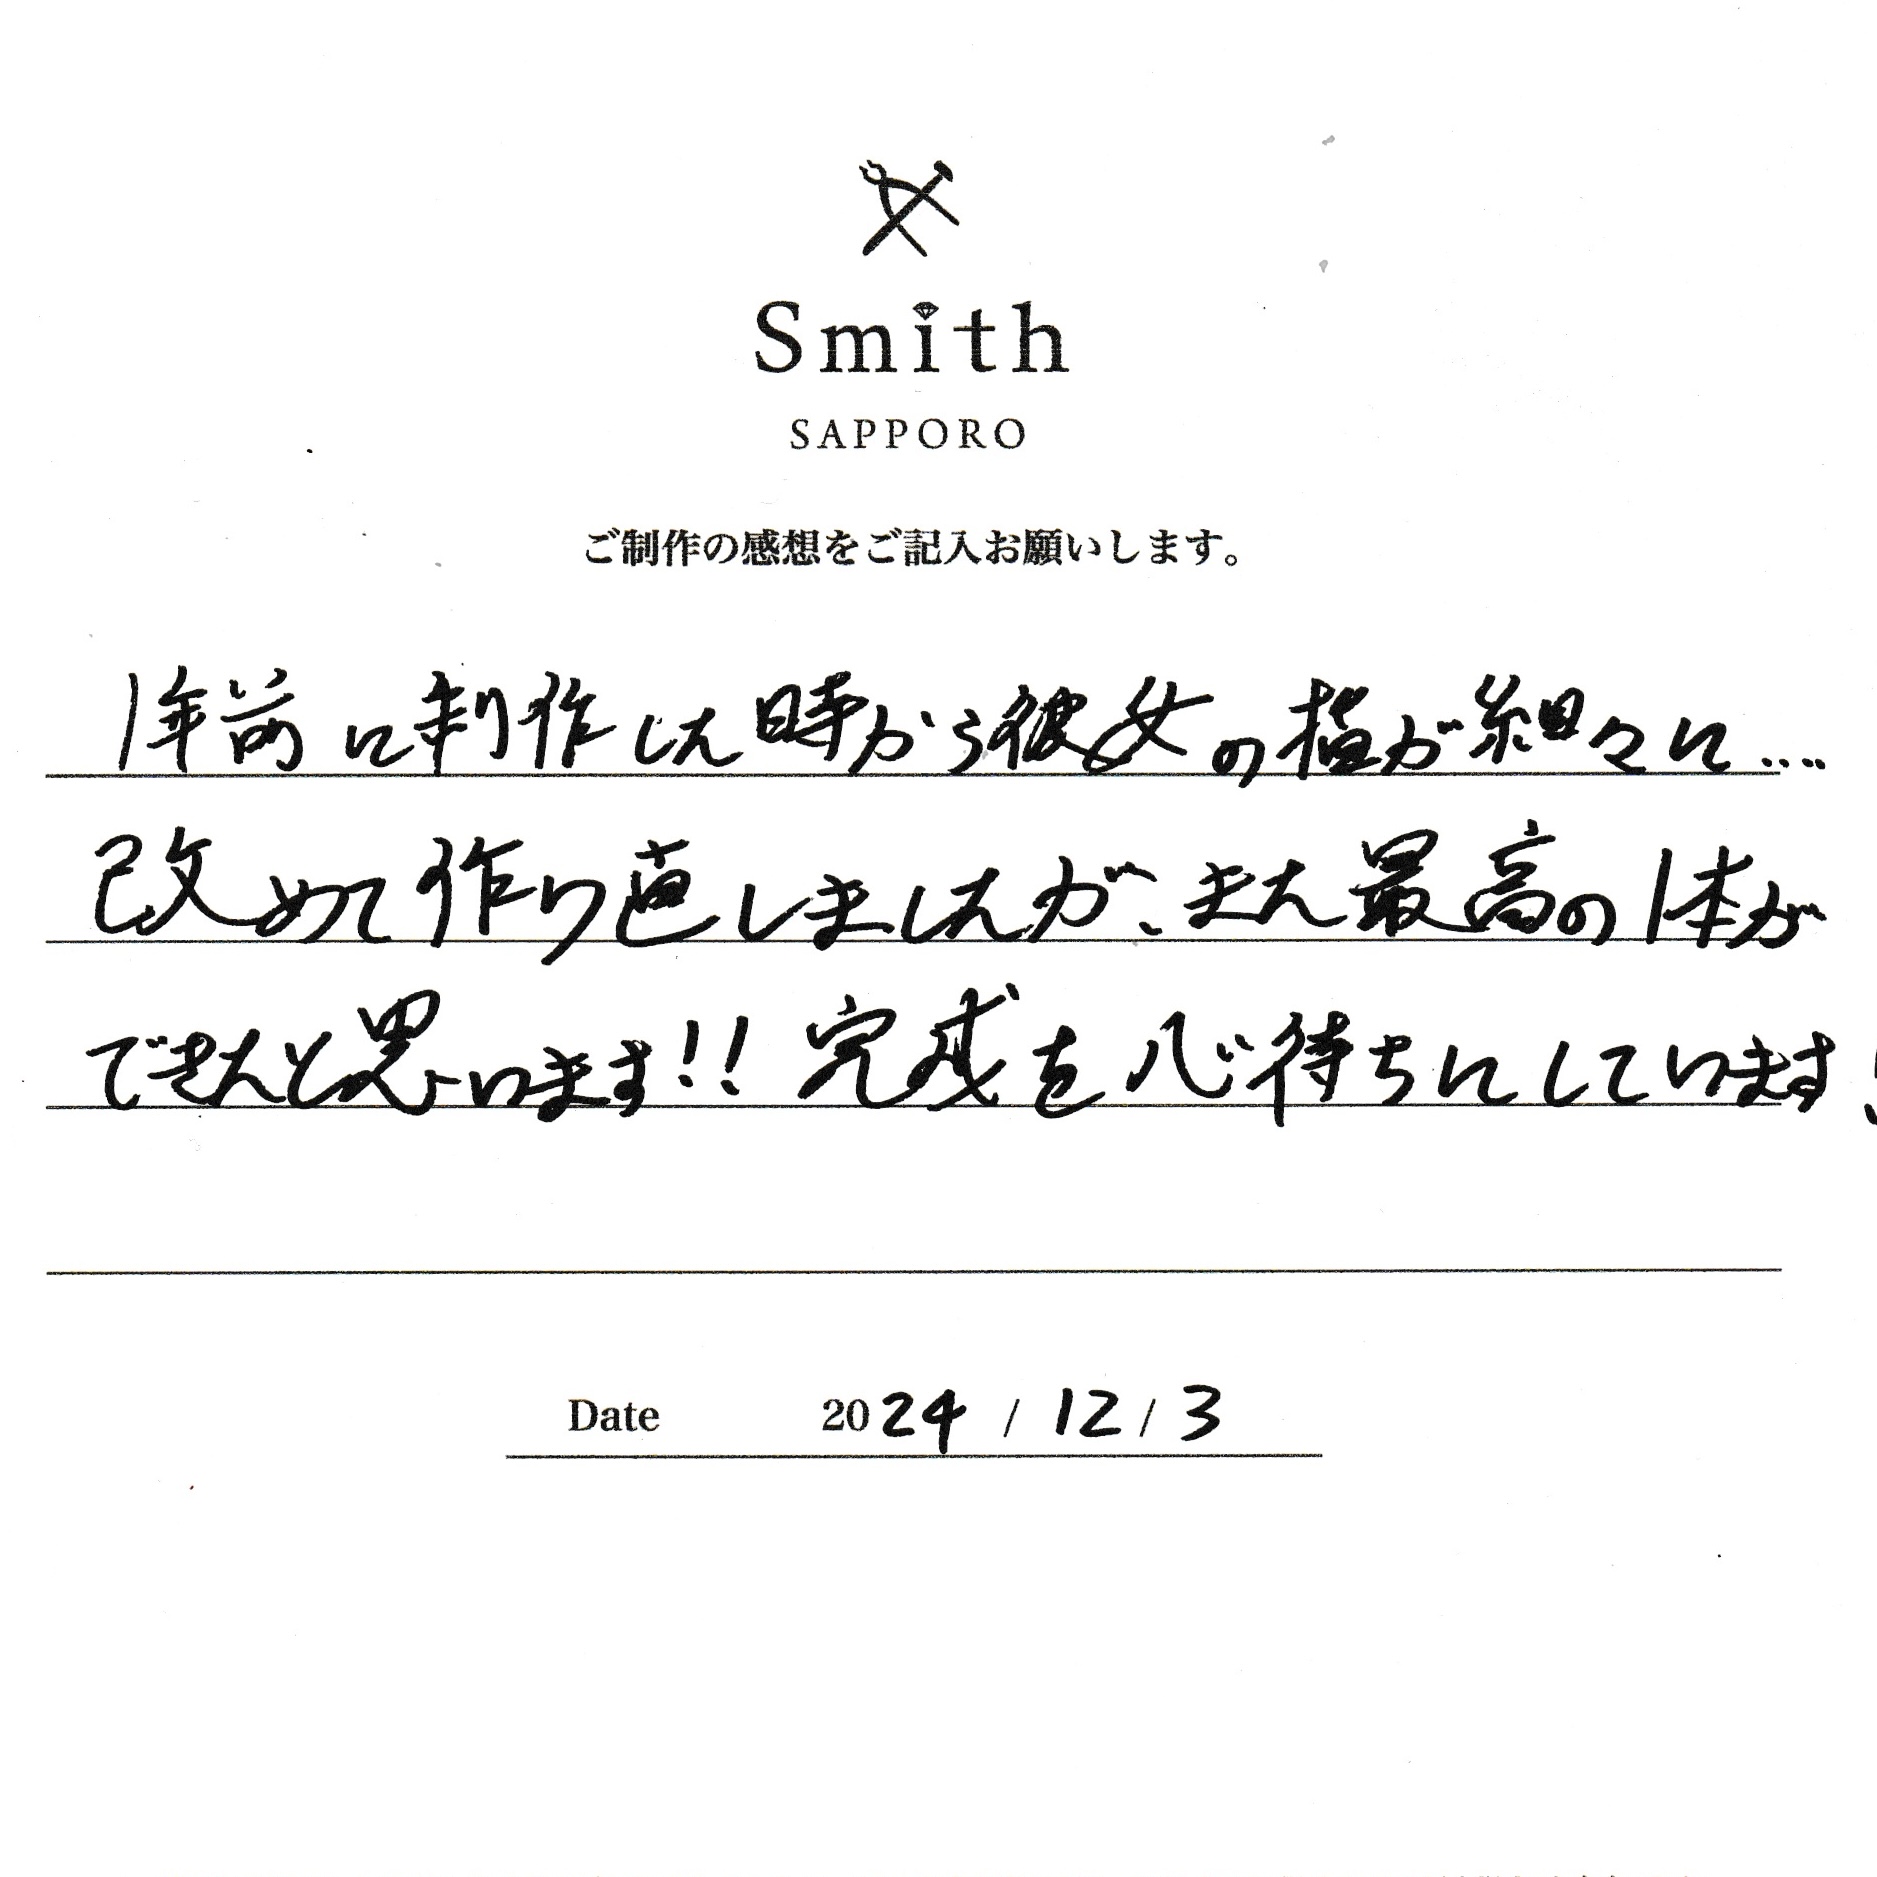 Smith
SAPPORO
ご制作の感想をご記入お願いします。
1年前に制作した時から彼女の指が細々に....
改めて作り直しましたが、また最高の1本が
できたと思います!! 完成を心待ちにしています!
Date 2024 / 12 / 3